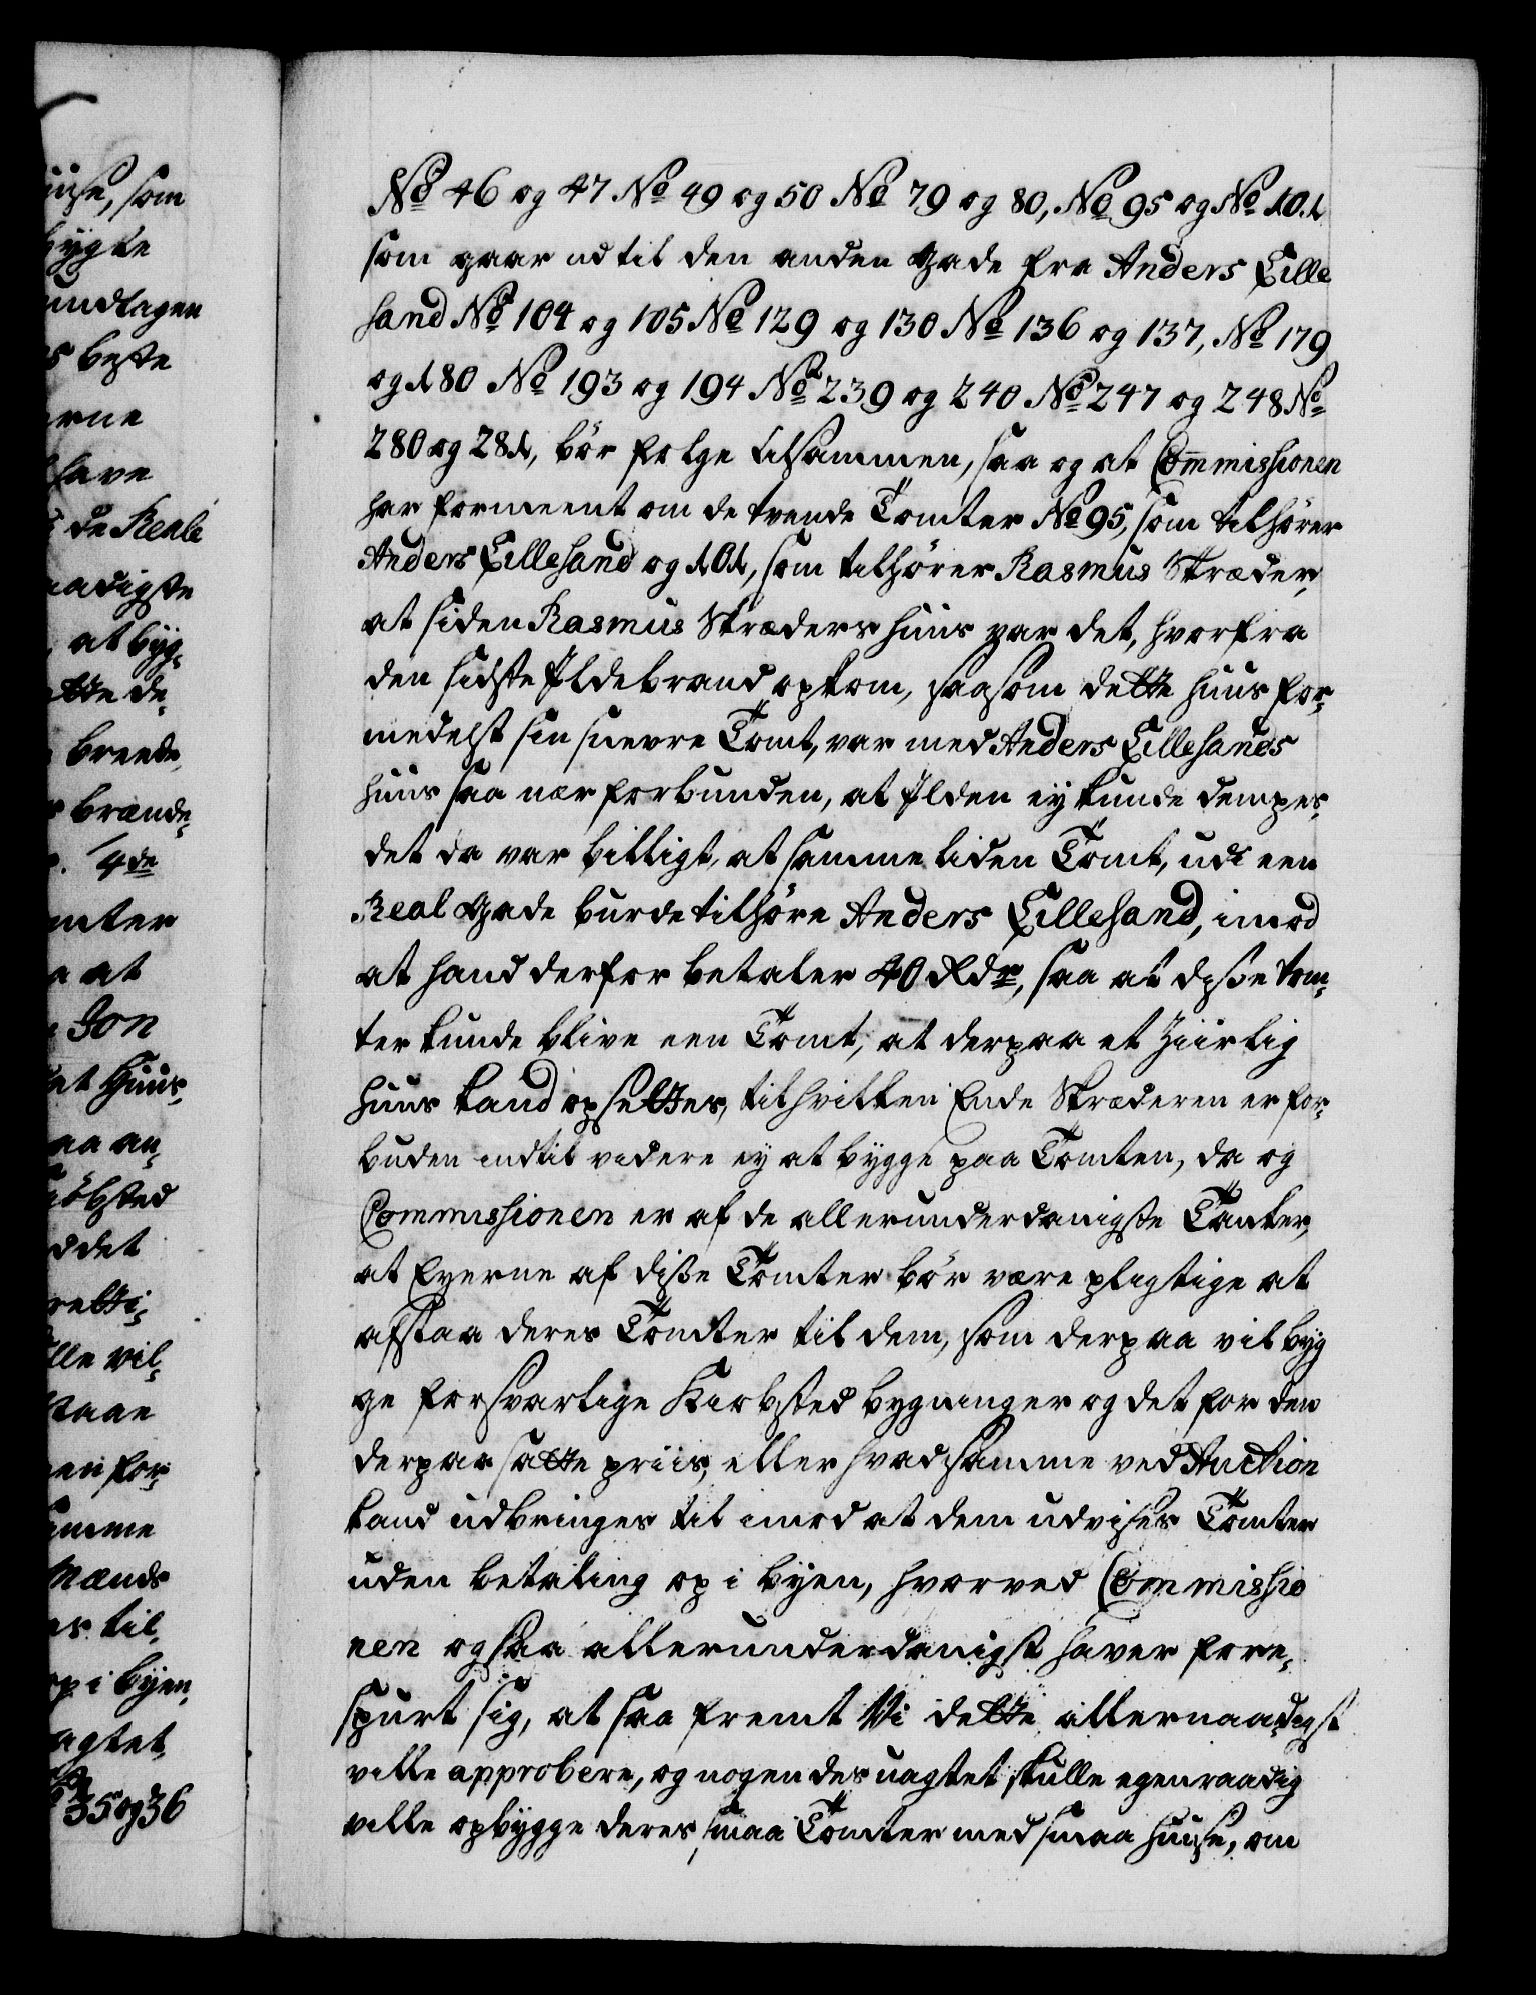 iise, som
bygte
undtagen
s beste
erne
have
de Reale
aadigste
, at byg-
ette de-
breede,
brænde-
4de
mter
a at
Jon
et Huus,
aa an-
kiöbsted
ddet
retti-
lle vil-
staae
en for-
amme
Mænds
es til-
op i byen,
agtet,
35 og 36
No 46 og 47 No 49 og 50 No 79 og 80, No 95 og No 101
som gaar ud til den anden Gade fra Anders Lille
sand No 104 og 105 No 129 og 130 No 136 og 137, No 179
og 180 No 193 og 194 No 239 og 240 No 247 og 248 No
280 og 281, bör følge tilsammen, saa og at Commissionen
har formeent om de tvende Tomter No 95, som tilhörer
Anders Lillesand og 101, som tilhörer Rasmus Skræder,
at siden Rasmus Skræders huus var det, hvorfra
den sidste Ildebrand opkom, saasom dette huus for-
medelst sin snevre Tomt, var med Anders Lillesands
huus saa nær forbunden, at Ilden ey kunde dempes,
det da var billigt, at samme liden Tomt, udi een
Real Gade burde tilhöre Anders Lillesand, imod
at hand derfor betaler 40 Rdr, saa at disse tom-
ter kunde blive een Tomt, at derpaa et Ziirlig
huus kand opsettes, til hvilken Ende Skræderen er for-
buden indtil videre ey at bygge paa Tomten, da og
Commissionen er af de allerunderdanigste Tanker,
at Eyerne af disse Tomter bör være pligtige at
afstaa deres Tomter til dem, som derpaa vil byg
ge forsvarlige Kiobsted bygninger og det for den
derpaa satte priis, eller hvad samme ved Auction
kand udbringes til imod at dem udvises Tomter
uden betaling op i byen, hvorved Commissio
nen ogsaa allerunderdanigst haver fore-
spurt sig, at saa fremt Vi dette allernaadigst
ville approbere, og nogen des uagtet skulle egenraadig
ville opbygge deres smaa Tomter med smaa huuse, om